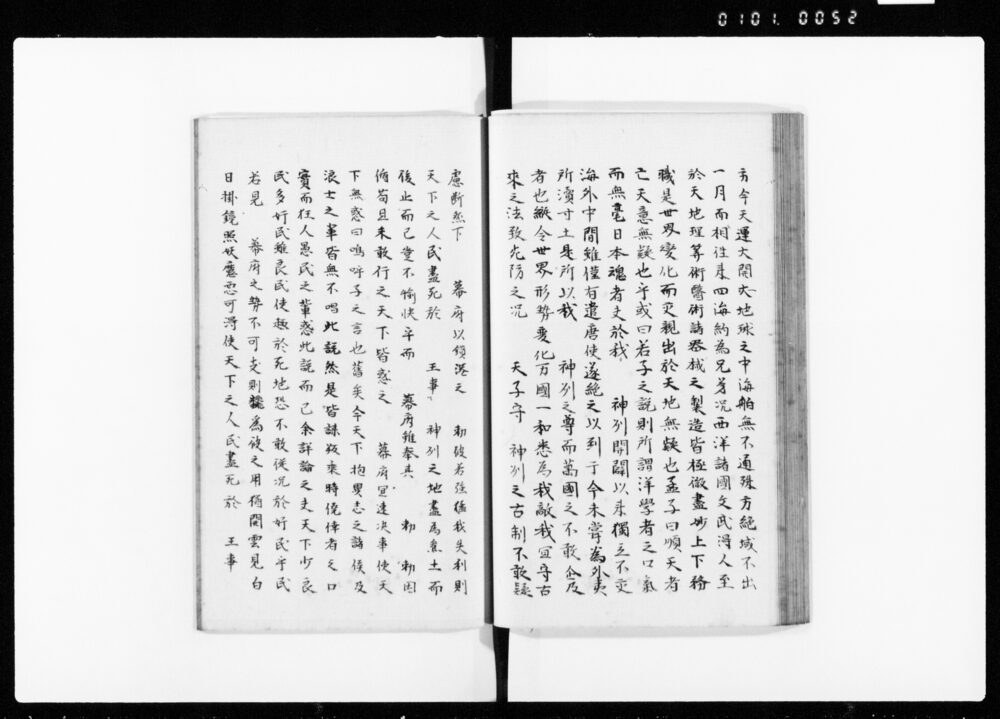 0101.0052
方今天運大開大地球之中海舶無不通殊方絶域不出
一月而相往来四海約為兄弟况西洋諸國文武得人至
於天地理算術醫術諸器械之製造皆極微盡妙上下務
職是世界變化而更親出於天地無疑也孟子曰順天者
亡天意無疑也乎或曰若子之説則所謂洋學者之口氣
而無毫日本魂者丈於我 神列開闢以来獨立不交
海外中間雖僅有遣唐使遂絶之以到于今未嘗為外夷
所瀆寸土是所以我 神列之尊而萬國之不敢企及
者也縦令世界形勢変化万國一和悉為我敵我冝守古
来之法致先防之况 天子守 神列之古制不敢疑
慮断然下 幕府以鎖港之 勅彼若强猛我失利則
天下之人民盡死於 王事 神列之地盡為焦土而
後止而已豈不愉快乎而 幕府雖奉其 勅 勅因
循苟且未敢行之天下皆惑之 幕府冝速决事使天
下無惑曰嗚呼子之言也舊矣今天下抱異志之諸侯及
浪士之軰皆無不唱此説然是皆謀叛乘時僥倖者之口
實而狂人愚民之軰惑此説而已余詳論之夫天下少良
民多奸民雖良民使趣於死地恐不敢従况於奸民乎民
若見 幕府之勢不可支則輙為彼之用猶開雲見白
日掛鏡照妖魔悪可得使天下之人民盡死於 王事